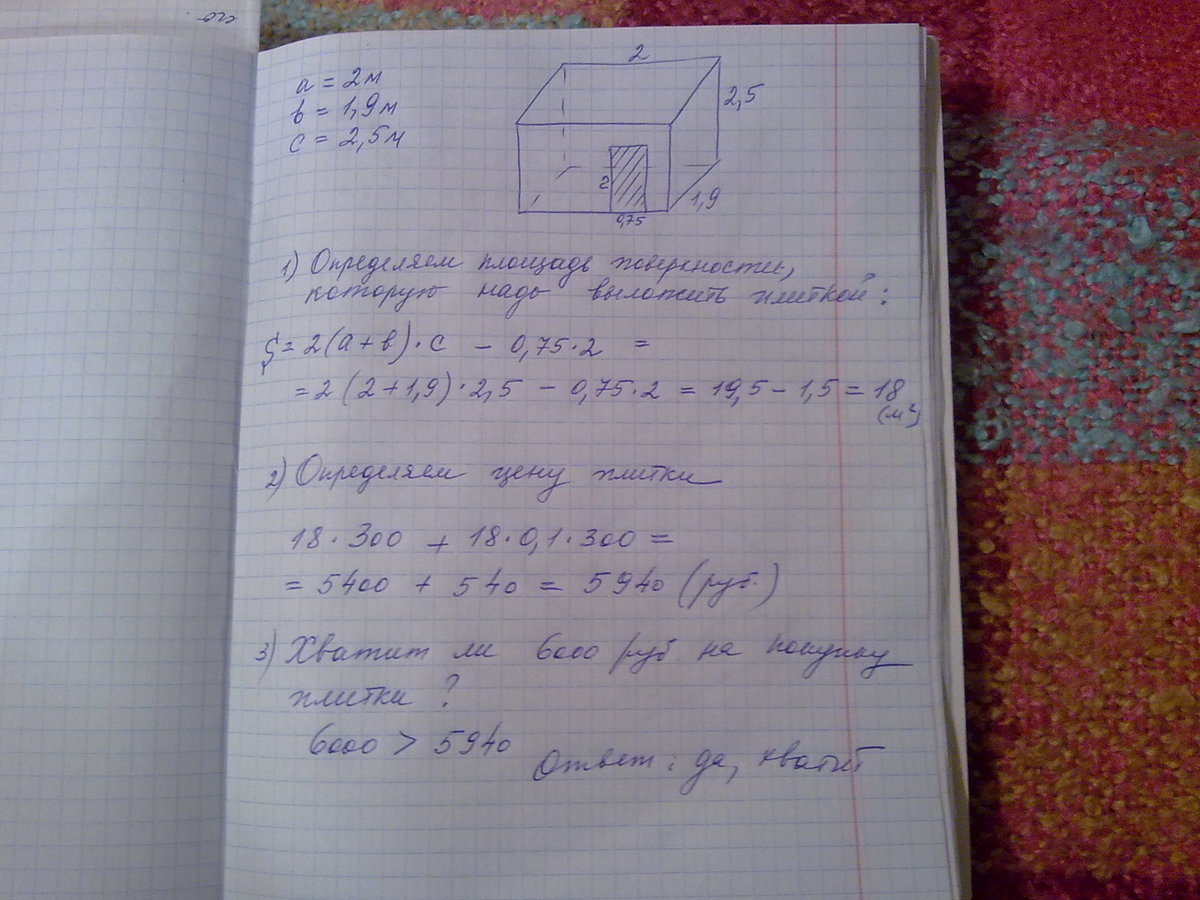 a = 2м
в = 1,9м
с = 2,5м
2
2,5
2
1,9
0,75
1) Определяем площадь поверхности,
которую надо выложить плиткой:
S = 2(a+в)·c – 0,75·2 =
= 2(2+1,9)·2,5 – 0,75·2 = 19,5 – 1,5 = 18
(м²)
2) Определяем цену плитки
18·300 + 18·0,1·300 =
= 5400 + 540 = 5940 (руб.)
3) Хватит ли 6000 руб на покупку
плитки?
6000 > 5940
Ответ: да, хватит